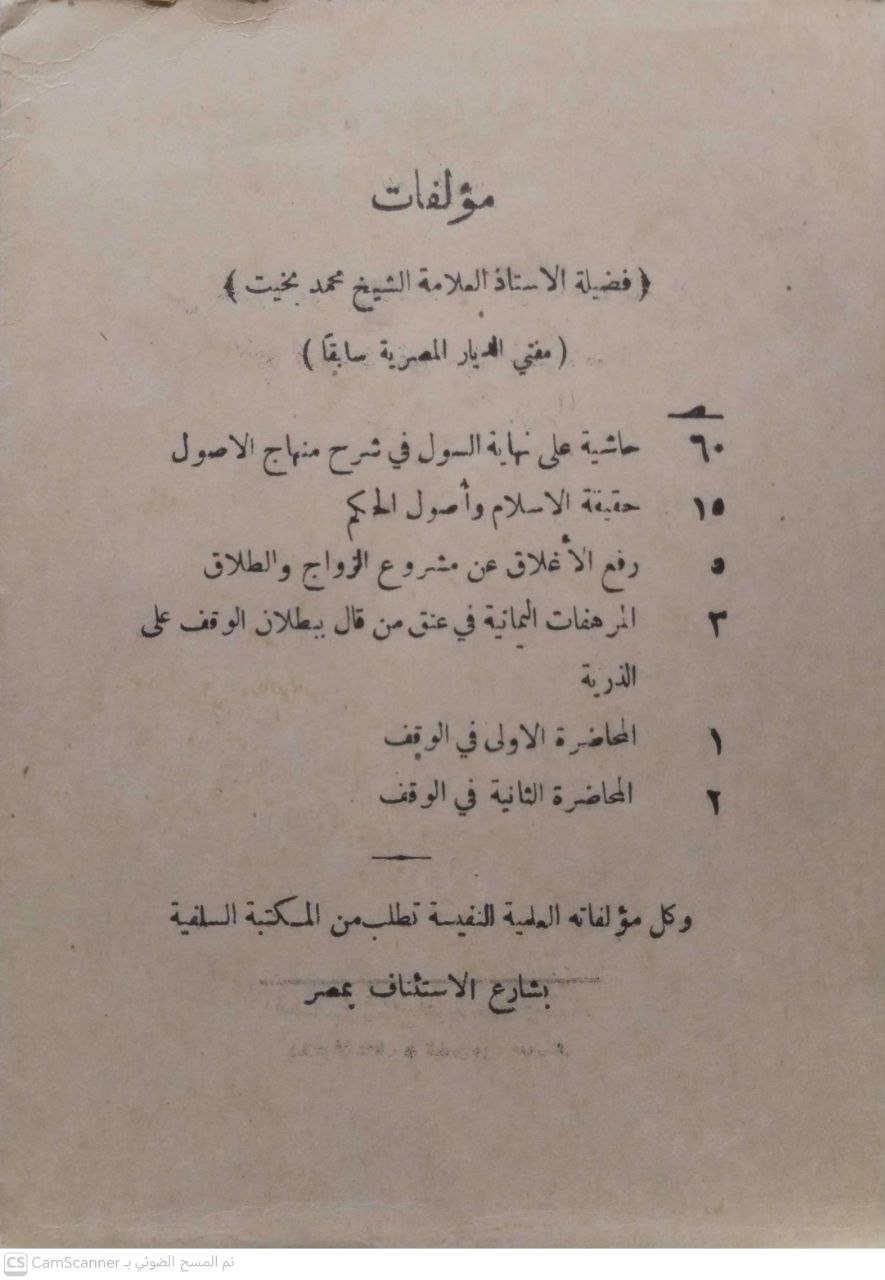 مؤلفات
﴿ فضيلة الاستاذ العلامة الشيخ محمد بخيت ﴾
( مفتي الديار المصرية سابقًا )
٦٠ حاشية على نهاية السول في شرح منهاج الاصول
١٥ حقيقة الاسلام وأصول الحكم
٥ رفع الأغلاق عن مشروع الزواج والطلاق
٣ المرهفات اليمانية في عنق من قال ببطلان الوقف على
الذرية
١ المحاضرة الاولى في الوقف
٢ المحاضرة الثانية في الوقف
وكل مؤلفاته العلمية النفيسة تطلب من المكتبة السلفية
بشارع الاستئناف بمصر
CS CamScanner تم المسح الضوئي بـ